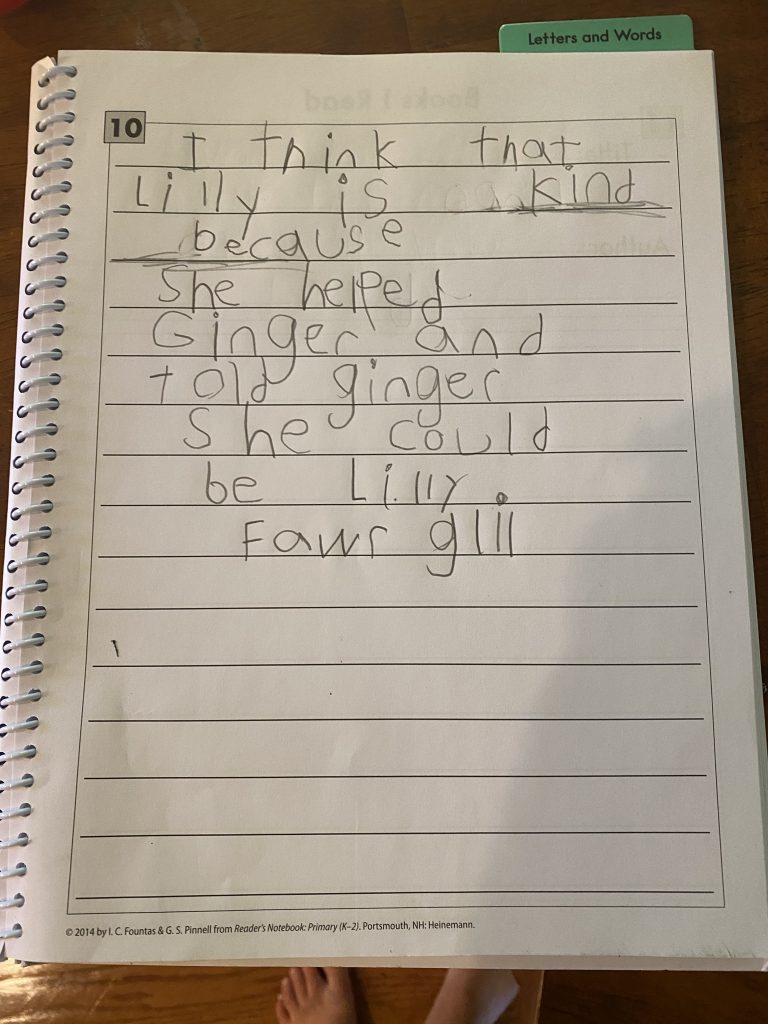 Letters and Words
Books I Read
10
I think that
Lilly is kind
because
She helped
Ginger and
told ginger
She could
be Lilly
Fawr glil
© 2014 by I. C. Fountas & G. S. Pinnell from Reader's Notebook: Primary (K–2). Portsmouth, NH: Heinemann.